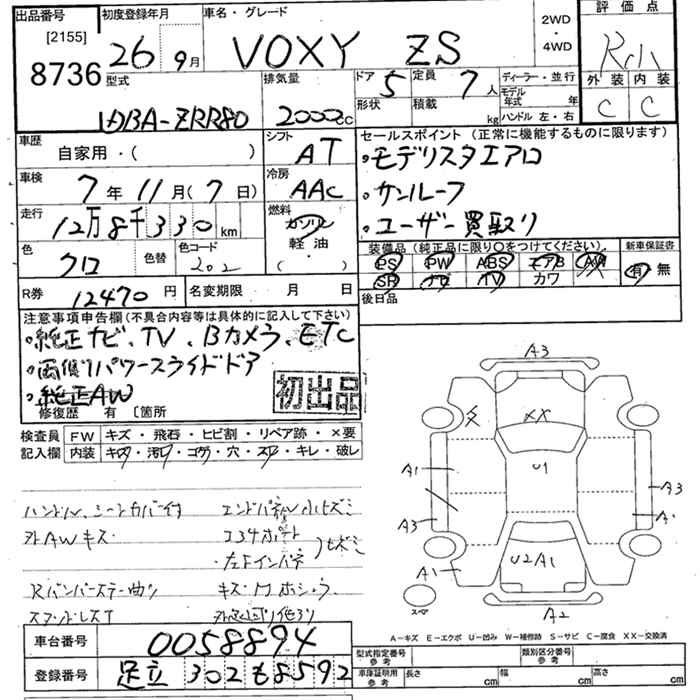 出品番号
[2155]
8736
初度登録年月
26年9月
車名・グレード
VOXY ZS
2WD
・
4WD
評価点
外装 内装
C C
型式
DBA-ZRR80
排気量
2000cc
ドア 5
形状
定員 7人
積載 kg
ディーラー・並行
モデル年式 年
ハンドル 左・右
車歴
自家用・( )
シフト
AT
車検
7年11月(7日)
冷房
AAC
走行
12万8千330km
燃料
ガソリン
軽油
( )
色
クロ
色替
色コード
202
R券 12470円
名変期限 月 日
セールスポイント(正常に機能するものに限ります)
・モデリスタエアロ
・サンルーフ
・ユーザー買取り
装備品(純正品に限り○をつけてください。)
新車保証書
PS PW ABS エアB AW
SR ナビ TV カワ
有 無
後日品
注意事項申告欄(不具合内容等は具体的に記入して下さい)
・純正ナビ、TV、Bカメラ、ETC
・両側パワースライドドア
・純正AW
初出品
修復歴 有 〔箇所
検査員記入欄
FW キズ・飛石・ヒビ割・リペア跡・×要
内装 キズ・汚レ・コゲ・穴・スレ・キレ・破レ
ハンドル、シートカバー付
外AWキズ
Rバンパーステー曲り
エンドパネル小ヒズミ
左Fインパネ
A3
XX
U1
A1
A3
A3
A1
A1
U2A1
A2
スペア
A-キズ E-エクボ U-凹み W-補修跡 S-サビ C-腐食 XX-交換済
車台番号 0058894
登録番号 足立 302 も 8592
型式指定番号
参考
類別区分番号
参考
車庫証明用
参考
長さ cm
幅 cm
高さ cm